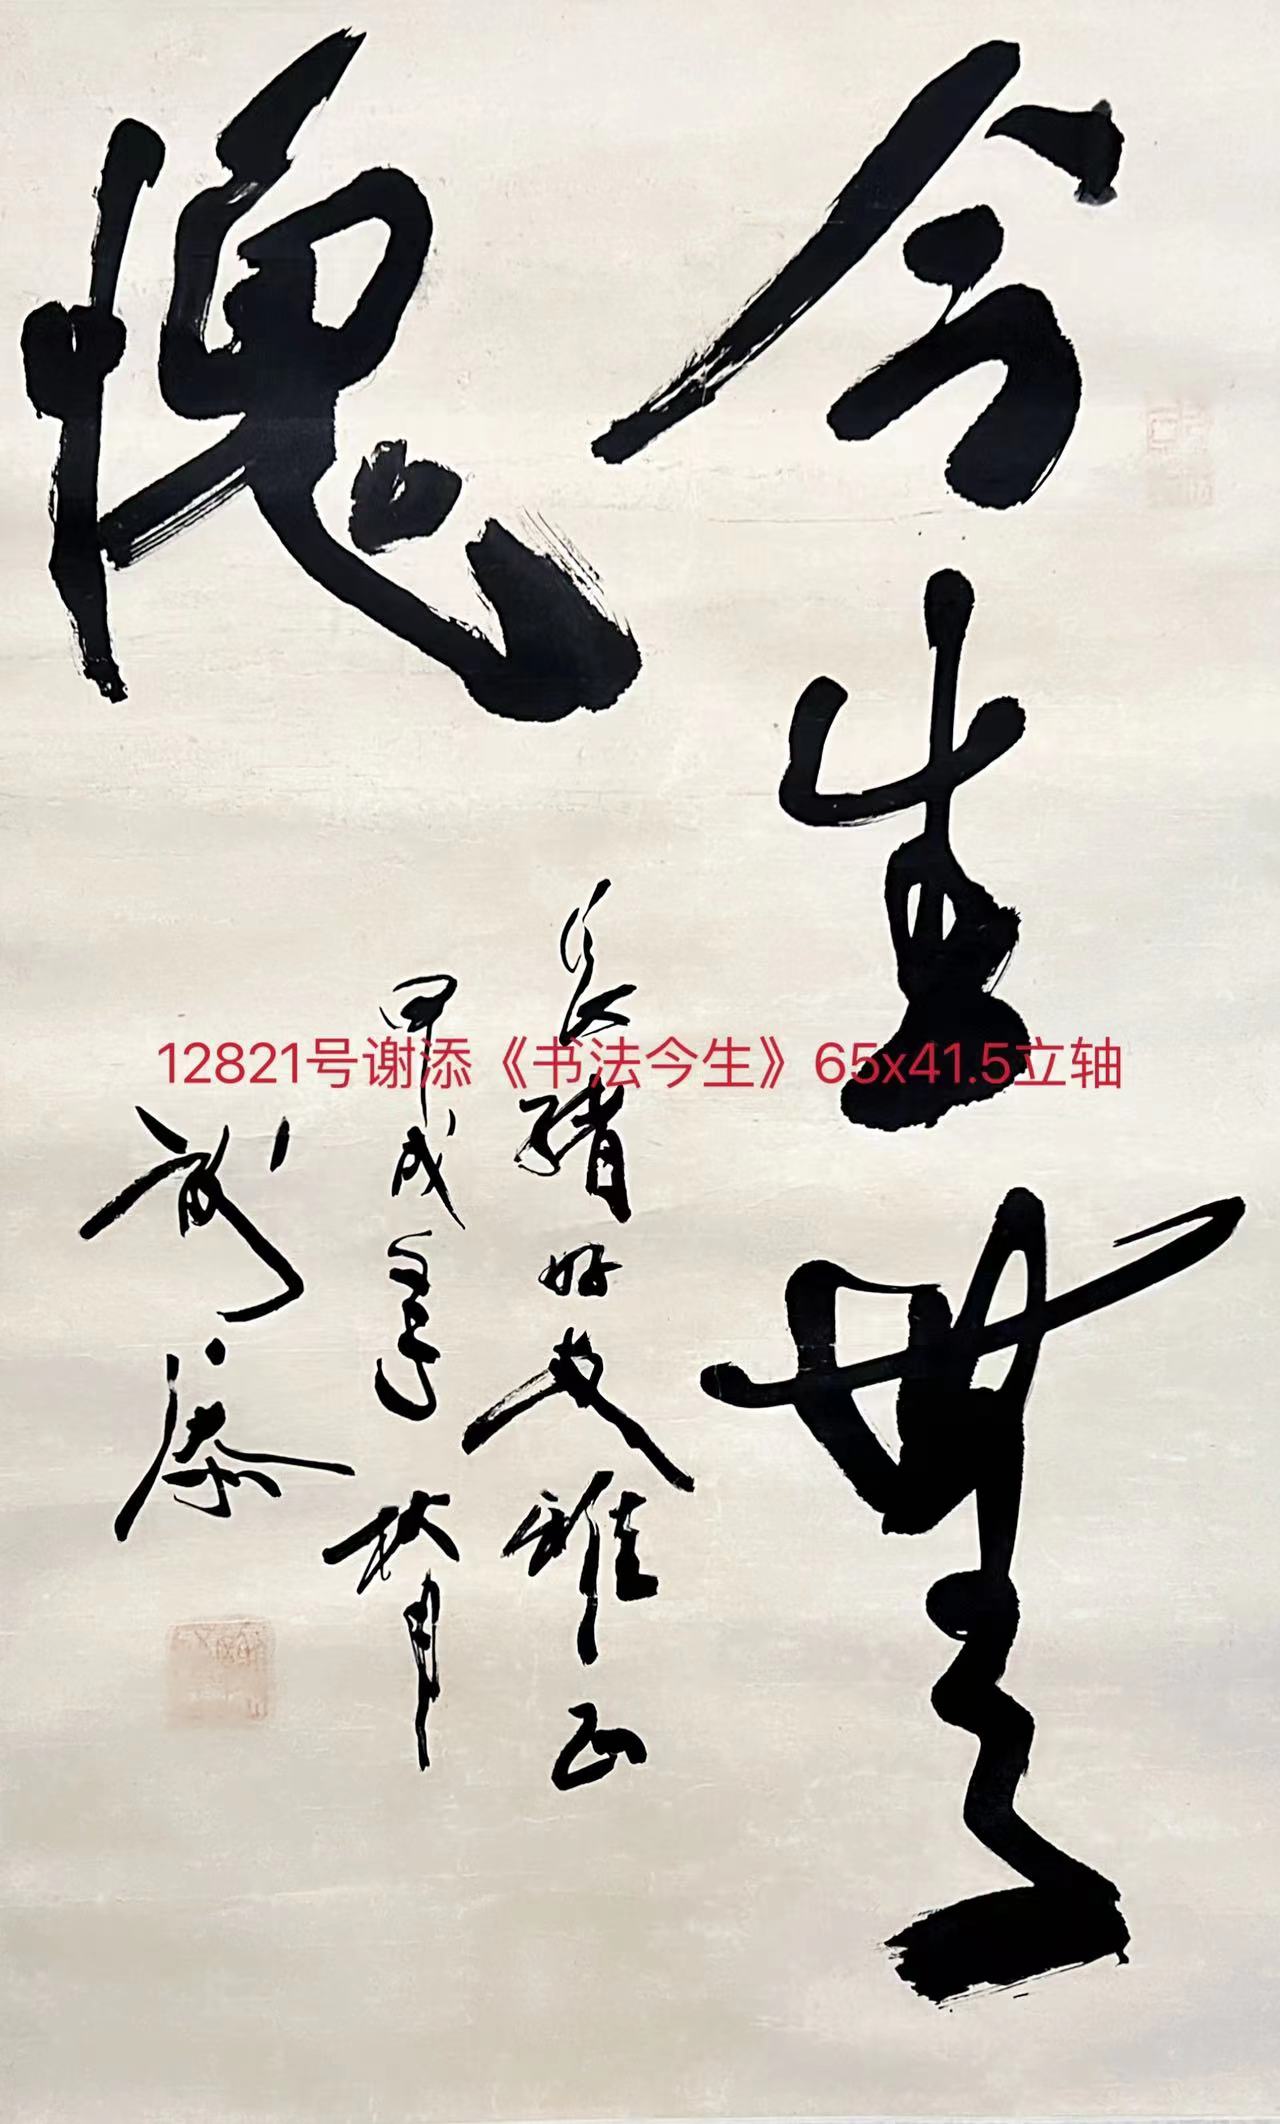 今生无
愧
绪好友雅正
甲戌年秋月
谢添
12821号谢添《书法今生》65x41.5立轴